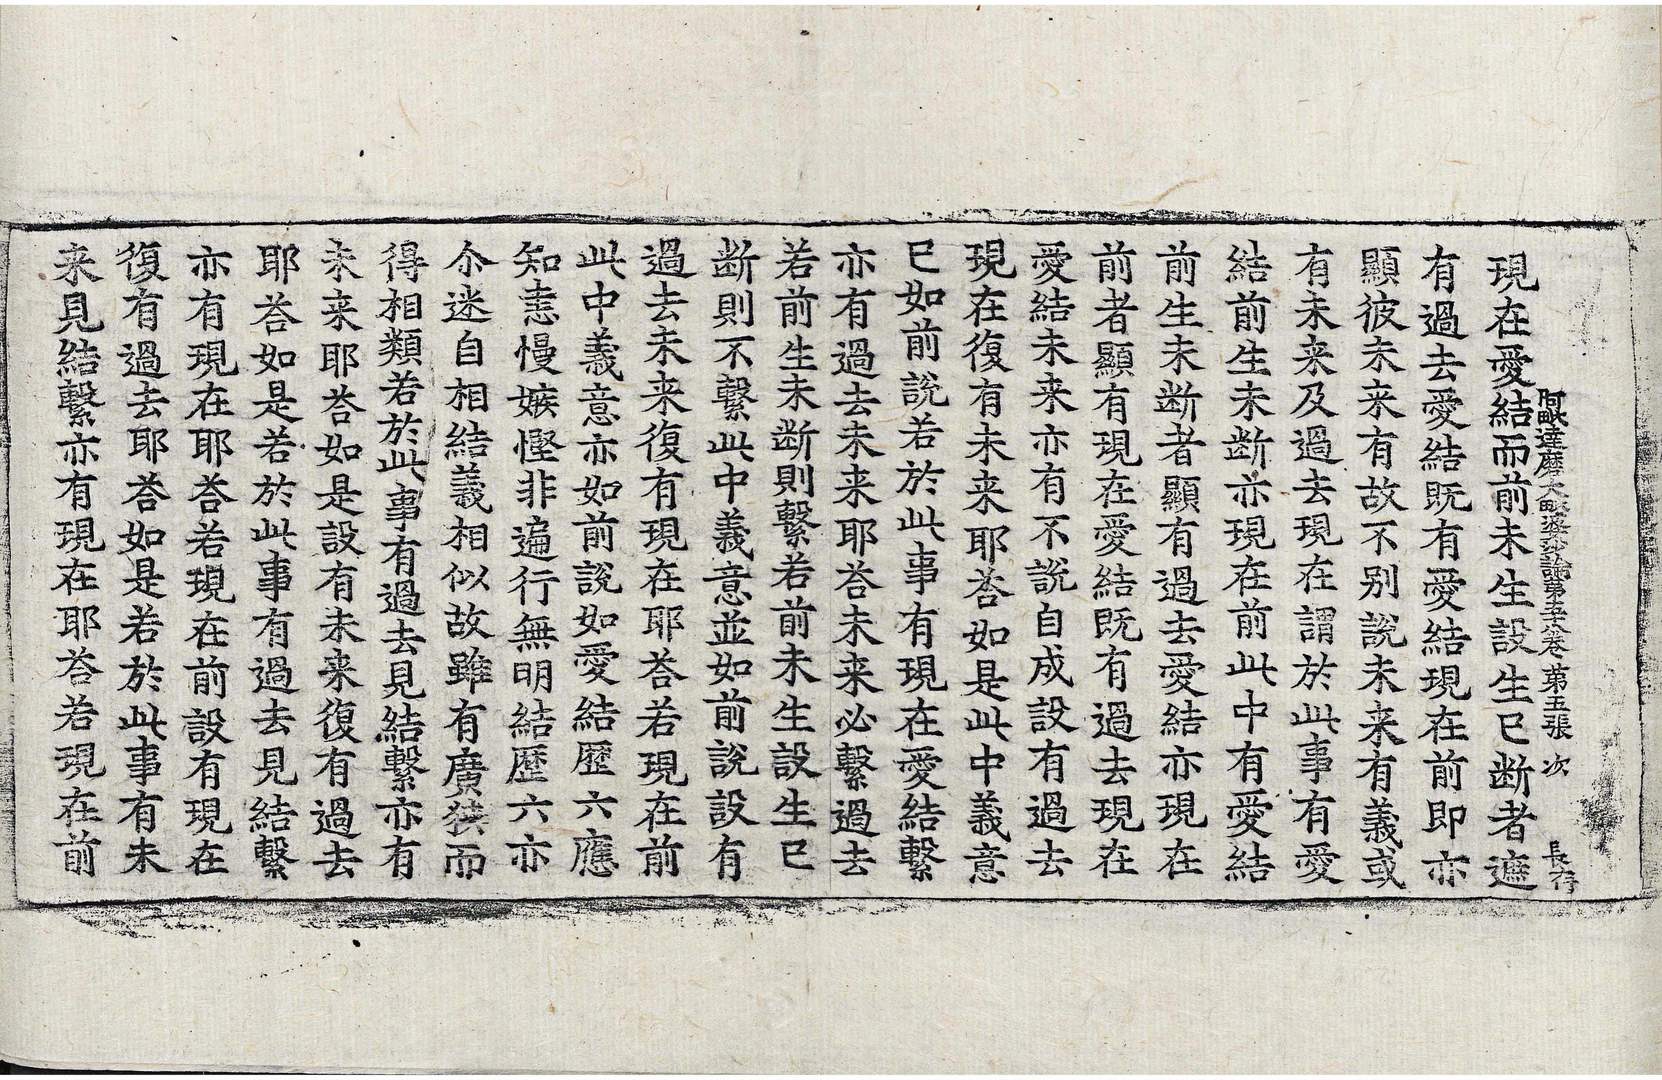 阿毗達磨大毗婆沙論第五十八卷 第五張 次 長存
現在愛結而前未生設生已断者遮
有過去愛結既有愛結現在前即亦
顯彼未来有故不别說未来有義或
有未来及過去現在謂於此事有愛
結前生未断亦現在前此中有愛結
前生未断者顯有過去愛結亦現在
前者顯有現在愛結既有過去現在
愛結未来亦有不說自成設有過去
現在復有未来耶荅如是此中義意
已如前說若於此事有現在愛結繫
亦有過去未来耶荅未来必繫過去
若前生未断則繫若前未生設生已
断則不繫此中義意並如前說設有
過去未来復有現在耶荅若現在前
此中義意亦如前說如愛結歷六應
知恚慢嫉慳非遍行無明結歷六亦
尒迷自相結義相似故雖有廣狹而
得相類若於此事有過去見結繫亦有
未来耶荅如是設有未来復有過去
耶荅如是若於此事有過去見結繫
亦有現在耶荅若現在前設有現在
復有過去耶荅如是若於此事有未
来見結繫亦有現在耶荅若現在前